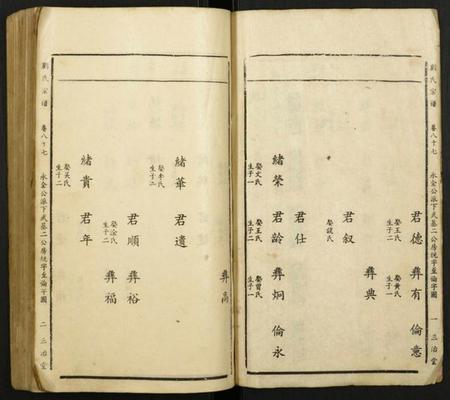 劉氏宗譜 卷八十七 永金公派下武基二公房統字至倫字圖 一 三治堂
君德 娶王氏 生子二 彝有 娶黄氏 生子一 倫意
彝典
君叙 娶談氏
君仕
緒榮 娶文氏 生子一 君龄 娶王氏 生子二 彝炯 娶曾氏 生子一 倫永
彝高
緒華 娶李氏 生子二 君遺
君順 娶涂氏 生子二 彝裕
彝福
緒貴 娶吴氏 生子二 君年
劉氏宗譜 卷八十七 永金公派下武基二公房統字至倫字圖 二 三治堂